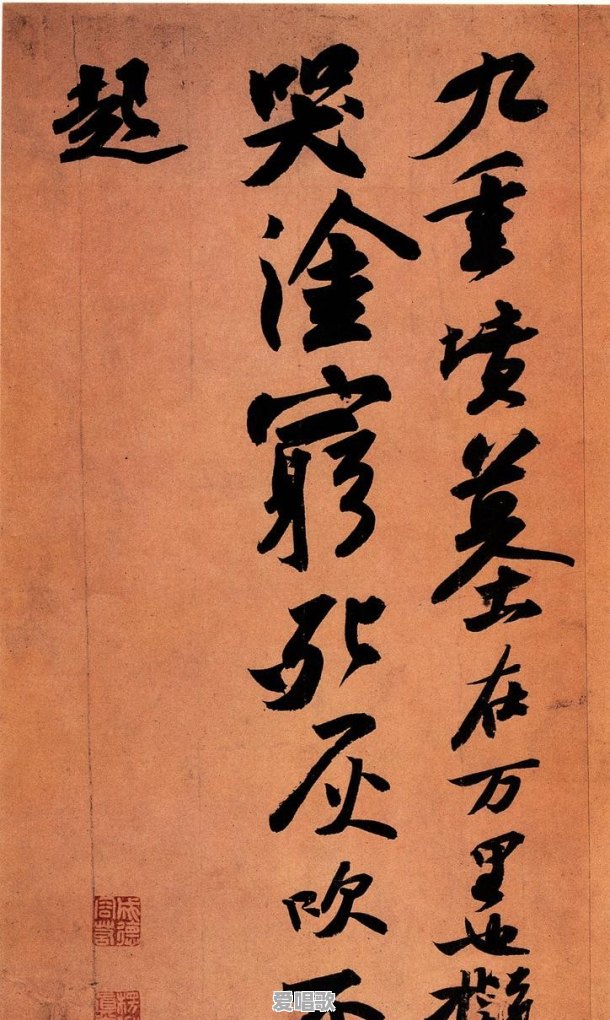 九重墳墓在万里也擬
哭塗窮死灰吹不
起
成德
容若
爱唱歌